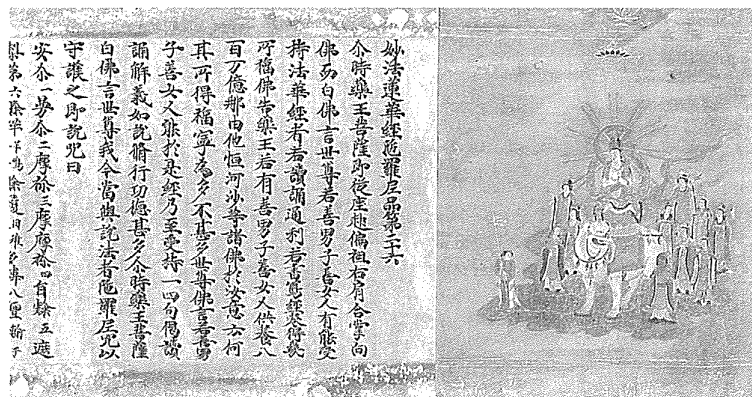 妙法蓮華經陀羅尼品第二十六
尒時藥王菩薩即從座起偏袒右肩合掌向
佛而白佛言世尊若善男子善女人有能受
持法華經者若讀誦通利若書寫經卷得幾
所福佛告藥王若有善男子善女人供養八
百万億那由他恒河沙等諸佛於汝意云何
其所得福寧為多不甚多世尊佛言若善男
子善女人能於是經乃至受持一四句偈讀
誦解義如說脩行功德甚多尒時藥王菩薩
白佛言世尊我今當與說法者陀羅尼咒以
守護之即說咒曰
安尒一曼尒二摩祢三摩摩祢四旨隸五遮
梨第六